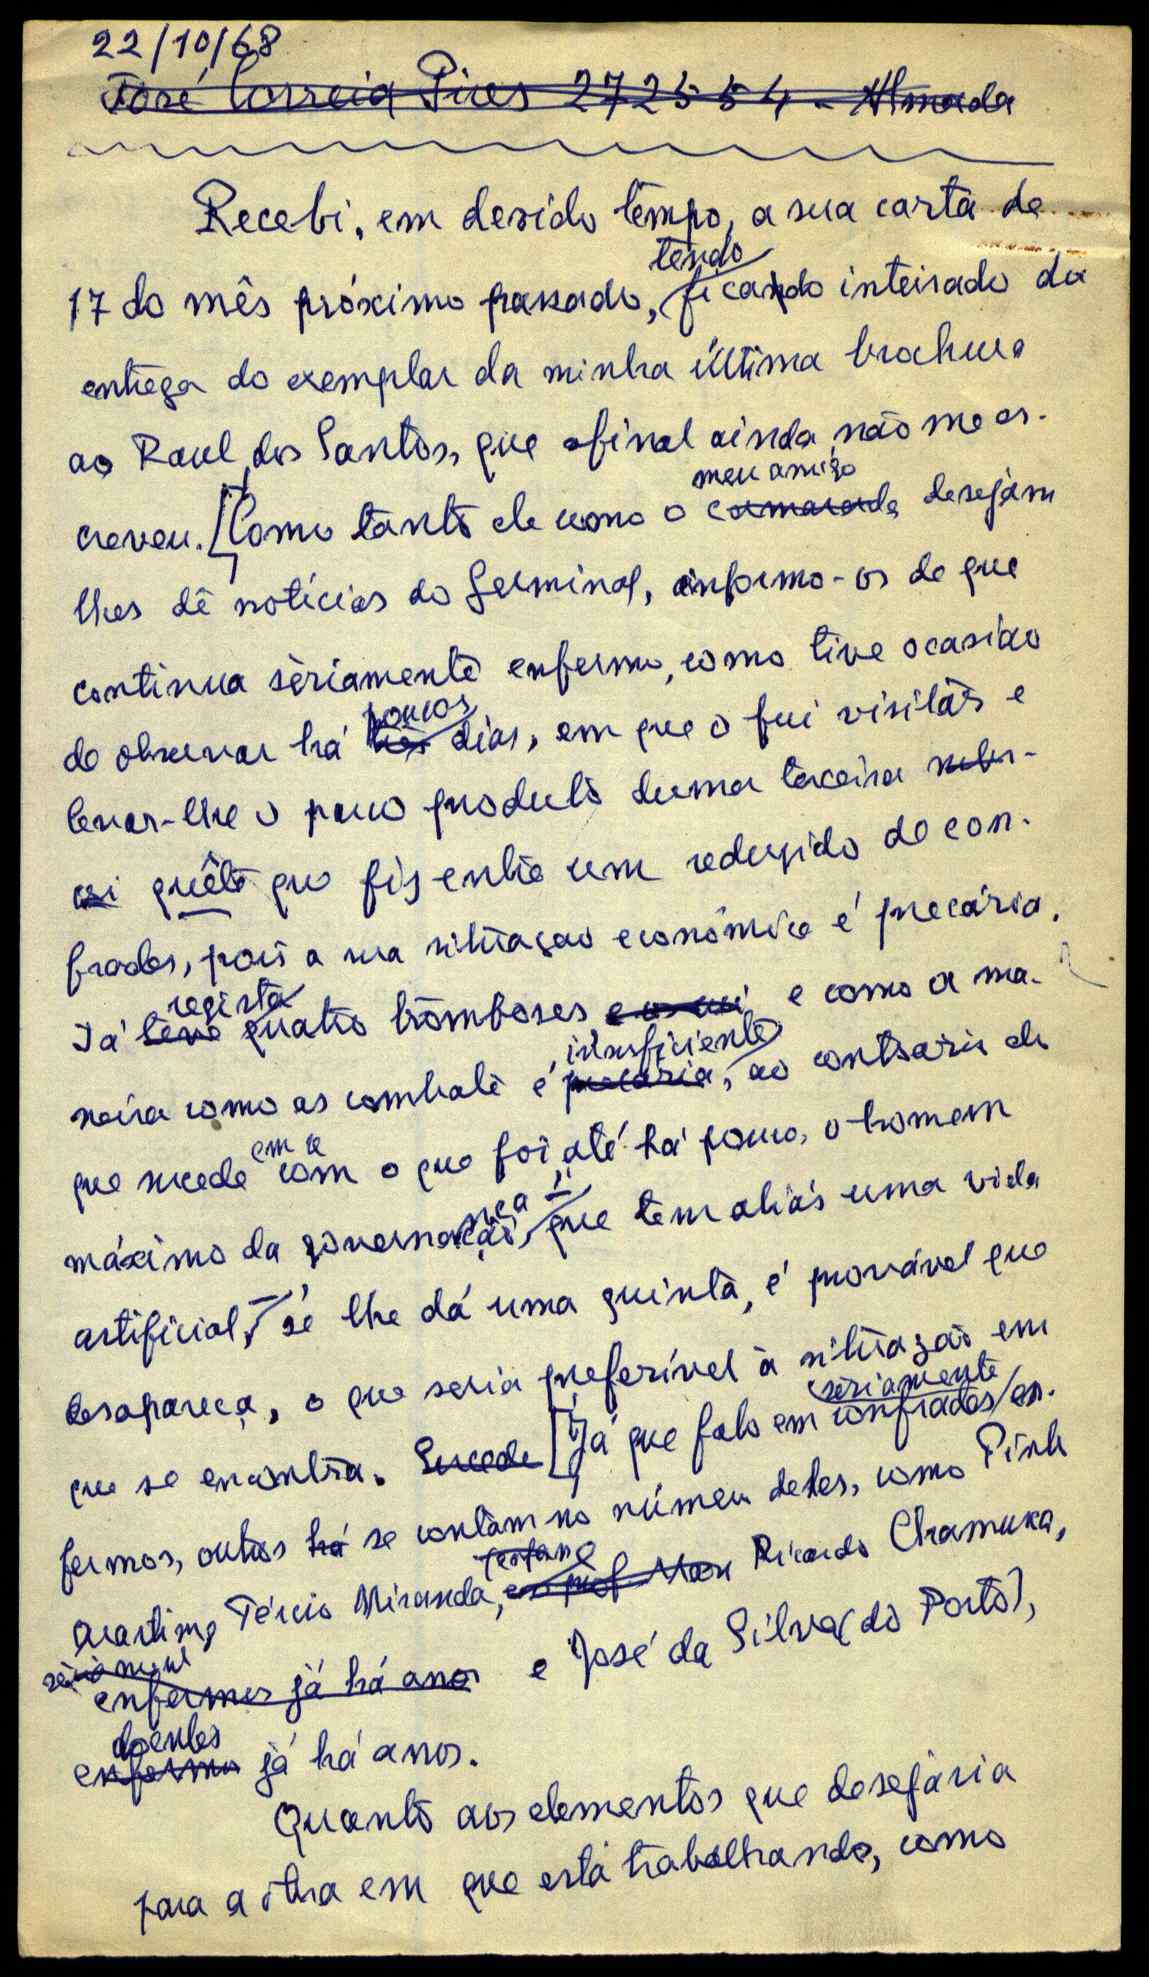 22/10/68
José Correia Pires 272554 - Almada
Recebi, em devido tempo, a sua carta de
tendo
17 do mês próximo passado, ficando inteirado da
entrega do exemplar da minha última brochura
ao Raul dos Santos, que afinal ainda não me es-
meu amigo
creveu. [Como tanto ele como o camarada desejam
lhes dê notícias do Germinal, informo-os de que
continua sèriamente enfermo, como tive ocasião
poucos
de observar há três dias, em que o fui visitar e
levar-lhe o pouco produto duma terceira subs-
cri quête que fiz entre um reduzido de con-
frades, pois a sua situação económica é precária.
regista
Já teve quatro tromboses e e como a ma-
insuficiente
neira como as combate é precária, ao contrário do
em re
que sucede com o que foi, até há pouco, o homem
máximo da governação, que tem aliás uma vida
artificial, se lhe dá uma quinta, é provável que
desapareça, o que seria preferível à situação em
sèriamente
que se encontra. Sucede [Já que falo em confrades en-
fermos, outros há se contam no número deles, como Pinto
Quartim, Tércio Miranda, Ricardo Chamusca,
enfermos já há anos e José da Silva (do Porto),
doentes
enfermos já há anos.
Quanto aos elementos que desejaria
para a obra em que está trabalhando, como